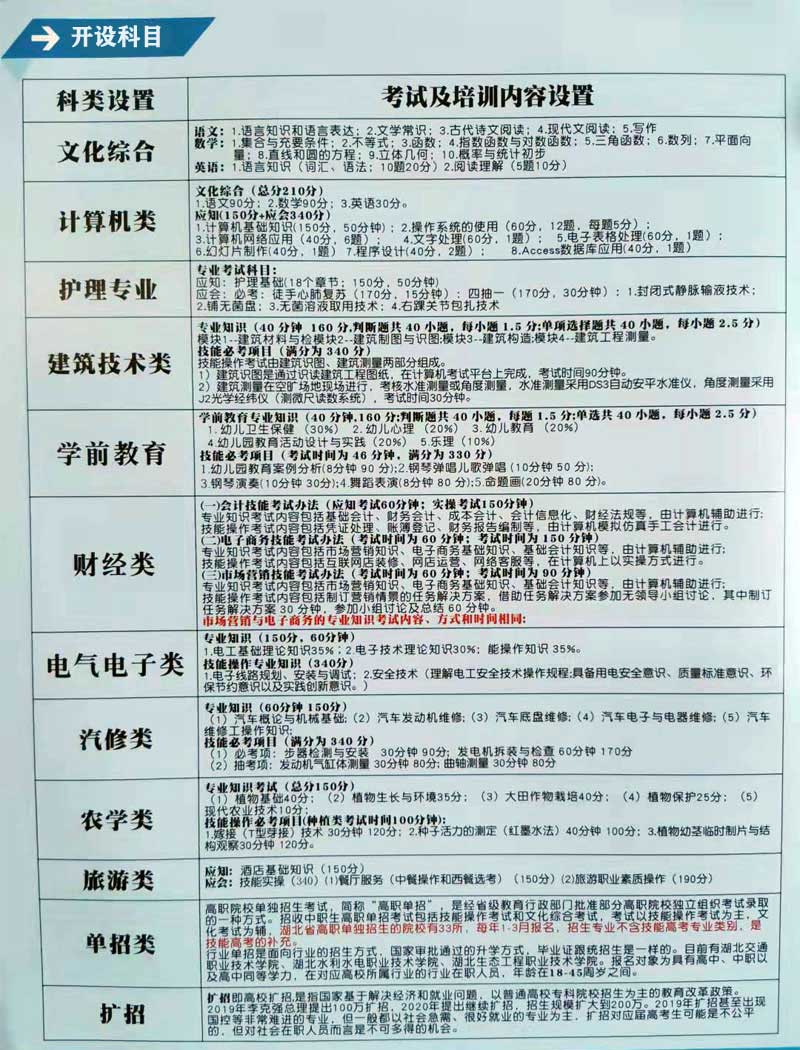 开设科目
科类设置
考试及培训内容设置
文化综合
语文：1.语言知识和语言表达；2.文学常识；3.古代诗文阅读；4.现代文阅读；5.写作
数学：1.集合与充要条件；2.不等式；3.函数；4.指数函数与对数函数；5.三角函数；6.数列；7.平面向
量；8.直线和圆的方程；9.立体几何；10.概率与统计初步
英语：1.语言知识（词汇、语法；10题20分）2.阅读理解（5题10分）
计算机类
文化综合（总分210分）
1.语文90分；2.数学90分；3.英语30分。
应知(150分+应会340分)
1.计算机基础知识(150分，50分钟)；2.操作系统的使用（60分，12题，每题5分）；
3.计算机网络应用（40分，6题）； 4.文字处理(60分，1题）；5.电子表格处理(60分，1题）；
6.幻灯片制作(40分，1题）7.程序设计(40分，2题）； 8.Access数据库应用(40分，1题）
护理专业
专业考试科目：
应知：护理基础(18个章节；150分，50分钟)
应会：必考：徒手心肺复苏（170分，15分钟）：四抽一（170分，30分钟）：1.封闭式静脉输液技术；
2.铺无菌盘；3.无菌溶液取用技术；4.右踝关节包扎技术
建筑技术类
专业知识（40分钟 160分,判断题共 40 小题，每小题 1.5 分;单项选择题共 40 小题，每小题 2.5 分）
模块1--建筑材料与检模块2--建筑制图与识图;模块3--建筑构造;模块4--建筑工程测量。
技能必考项目（满分为 340 分）
技能操作考试由建筑识图、建筑测量两部分组成。
1）建筑识图是通过识读建筑工程图纸，在计算机考试平台上完成，考试时间90分钟。
2）建筑测量在空旷场地现场进行，考核水准测量或角度测量，水准测量采用DS3自动安平水准仪，角度测量采用
J2光学经纬仪（测微尺读数系统），考试时间30分钟。
学前教育
学前教育专业知识（40分钟,160分;判断题共 40 小题，每题 1.5 分;单选共 40 小题，每小题 2.5 分）
1. 幼儿卫生保健 （30%） 2.幼儿心理 （20%） 3.幼儿教育 （20%）
4.幼儿园教育活动设计与实践（20%） 5.乐理（10%）
技能必考项目（考试时间为 46 分钟，满分为 330 分）
1.幼儿园教育案例分析(8分钟 90 分);2.钢琴弹唱儿歌弹唱 (10分钟 50 分);
3.钢琴演奏(10分钟 30分);4.舞蹈表演(8分钟 80 分);5.命题画(20分钟 80 分)。
财经类
(一)会计技能考试办法（应知考试60分钟；实操考试150分钟）
专业知识考试内容包括基础会计、财务会计、成本会计、会计信息化、财经法规等，由计算机辅助进行;
技能操作考试内容包括凭证处理、账簿登记、财务报告编制等，由计算机模拟仿真手工会计进行。
(二)电子商务技能考试办法（考试时间为 60 分钟；考试时间为 150 分钟）
专业知识考试内容包括市场营销知识、电子商务基础知识、基础会计知识等，由计算机辅助进行;
技能操作考试内容包括互联网店装修、网店运营、网络客服等，在计算机上以实操方式进行。
(三)市场营销技能考试办法（考试时间为 60 分钟；考试时间为 90 分钟）
专业知识考试内容包括市场营销知识、电子商务基础知识、基础会计知识等，由计算机辅助进行;
技能操作考试内容包括制订营销情景的任务解决方案，借助任务解决方案参加无领导小组讨论，其中制订
任务解决方案 30 分钟，参加小组讨论及总结 60 分钟。
市场营销与电子商务的专业知识考试内容、方式和时间相同:
电气电子类
专业知识（150分，60分钟）
1.电工基础理论知识35%；2.电子技术理论知识30%；能操作知识 35%。
技能操作专业知识（340分）
1.电子线路规划、安装与调试；2.安全技术（理解电工安全技术操作规程;具备用电安全意识、质量标准意识、环
保节约意识以及实践创新意识。）
汽修类
专业知识（60分钟 150分）
（1）汽车概论与机械基础;（2）汽车发动机维修;（3）汽车底盘维修;（4）汽车电子与电器维修;（5）汽车
维修工操作知识;
技能必考项目（满分为 340 分）
（1）必考项：步器检测与安装 30分钟 90分; 发电机拆装与检查 60分钟 170分
（2）抽考项：发动机气缸体测量 30分钟 80分; 曲轴测量 30分钟 80分
农学类
专业知识考试（总分150分）
（1）植物基础40分；（2）植物生长与环境35分；（3）大田作物栽培40分；（4）植物保护25分；（5）
现代农业技术10分；
技能操作必考项目(种植类考试时间100分钟):
1.嫁接（T型芽接）技术 30分钟 120分；2.种子活力的测定（红墨水法）40分钟 100分；3.植物幼茎临时制片与结
构观察30分钟 120分。
旅游类
应知：酒店基础知识（150分）
应会：技能实操（340）(1)餐厅服务（中餐操作和西餐选考）（150分）(2)旅游职业素质操作（190分）
单招类
高职院校单独招生考试，简称“高职单招”，是经省级教育行政部门批准部分高职院校独立组织考试录取
的一种方式。招收中职生高职单招考试包括技能操作考试和文化综合考试，考试以技能操作考试为主，文
化考试为辅，湖北省高职单独招生的院校有33所，每年1-3月报名，招生专业不含技能高考专业类别，是
技能高考的补充。
行业单招是面向行业的招生方式，国家审批通过的升学方式，毕业证跟统招生是一样的。目前有湖北交通
职业技术学院、湖北水利水电职业技术学院、湖北生态工程职业技术学院。报名对象为具有高中、中职以
及高中同等学力，在对应高校所属行业的行业在职人员，年龄在18-45周岁之间。
扩招
扩招即高校扩招,是指国家基于解决经济和就业问题，以普通高校专科院校招生为主的教育改革政策。
2019年李克强总理提出100万扩招，2020年提出继续扩招，招生规模扩大到200万。2019年扩招甚至出现
国控等非常难进的专业，但一般都以社会急需、很好就业的专业为主，扩招对应届高考生可能是不公平
的，但对社会在职人员而言是不可多得的机会。